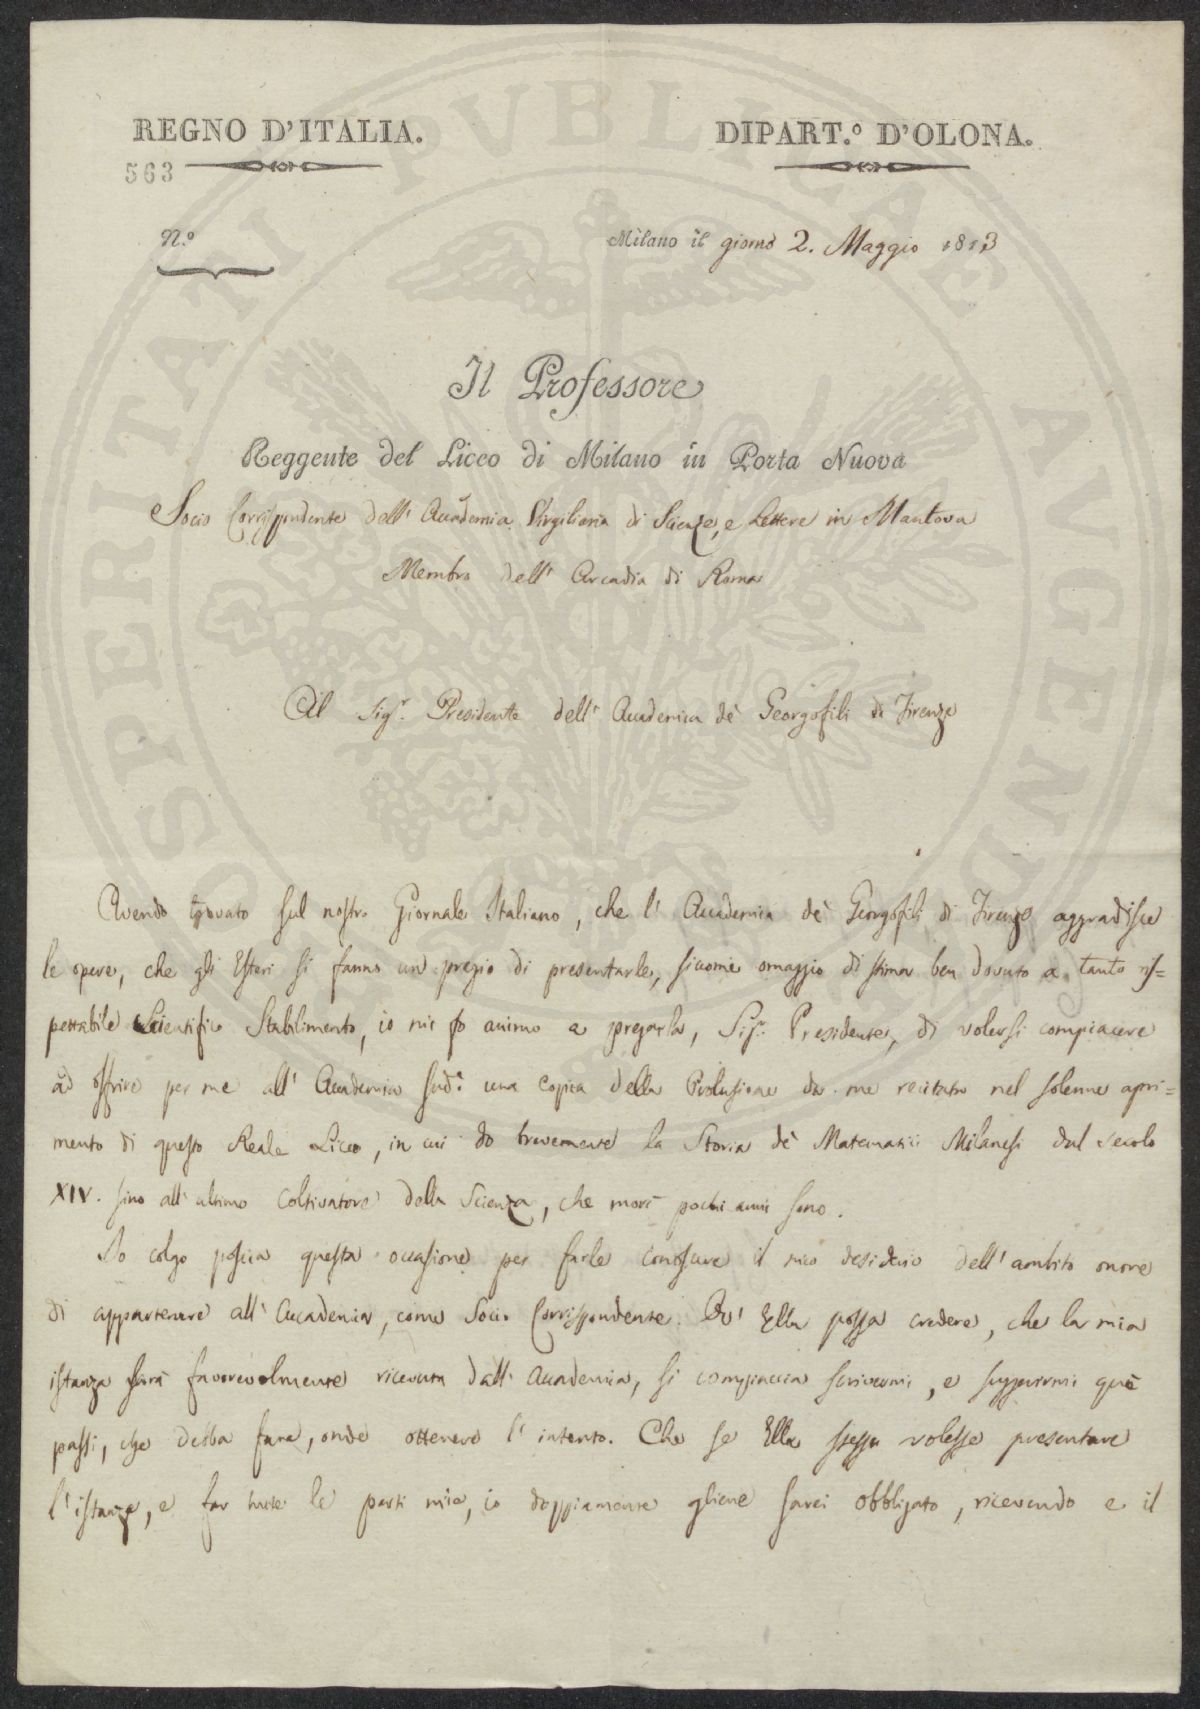 REGNO D'ITALIA.
DIPART.º D'OLONA.
563
N.º
Milano il giorno 2. Maggio 1813
Il Professore
Reggente del Liceo di Milano in Porta Nuova
Socio Corrispondente dell' Accademia Virgiliana di Scienze, e Lettere in Mantova
Membro dell' Arcadia di Roma
Al Sig.r Presidente dell' Accademia de' Georgofili di Firenze
Avendo trovato sul nostro Giornale Italiano, che l' Accademia de' Georgofili di Firenze aggradisce
le opere, che gli Esteri si fanno un pregio di presentarle, siccome omaggio di stima ben dovuto a tanto ris=
pettabile Scientifico Stabilimento, io mi fo animo a pregarla, Sig.r Presidente, di volersi compiacere
ad offrire per me all' Accademia sud.a una copia della Prolusione da me recitata nel solenne apri=
mento di questo Reale Liceo, in cui do brevemente la Storia de' Matematici Milanesi dal secolo
XIV. sino all' ultimo coltivatore della Scienza, che morì pochi anni sono.
Io colgo poscia questa occasione per farle conoscere il mio desiderio dell' ambito onore
di appartenere all' Accademia, come Socio Corrispondente. Ov' Ella possa credere, che la mia
istanza sarà favorevolmente ricevuta dall' Accademia, si compiaccia scrivermi, e suggerirmi què
passi, che debba fare, onde ottenere l' intento. Che se Ella stessa volesse presentare
l' istanza, e far tutte le parti mie, io doppiamente gliene sarei obbligato, ricevendo e il
OSPERITATI PVBLICAE AVGENDAE